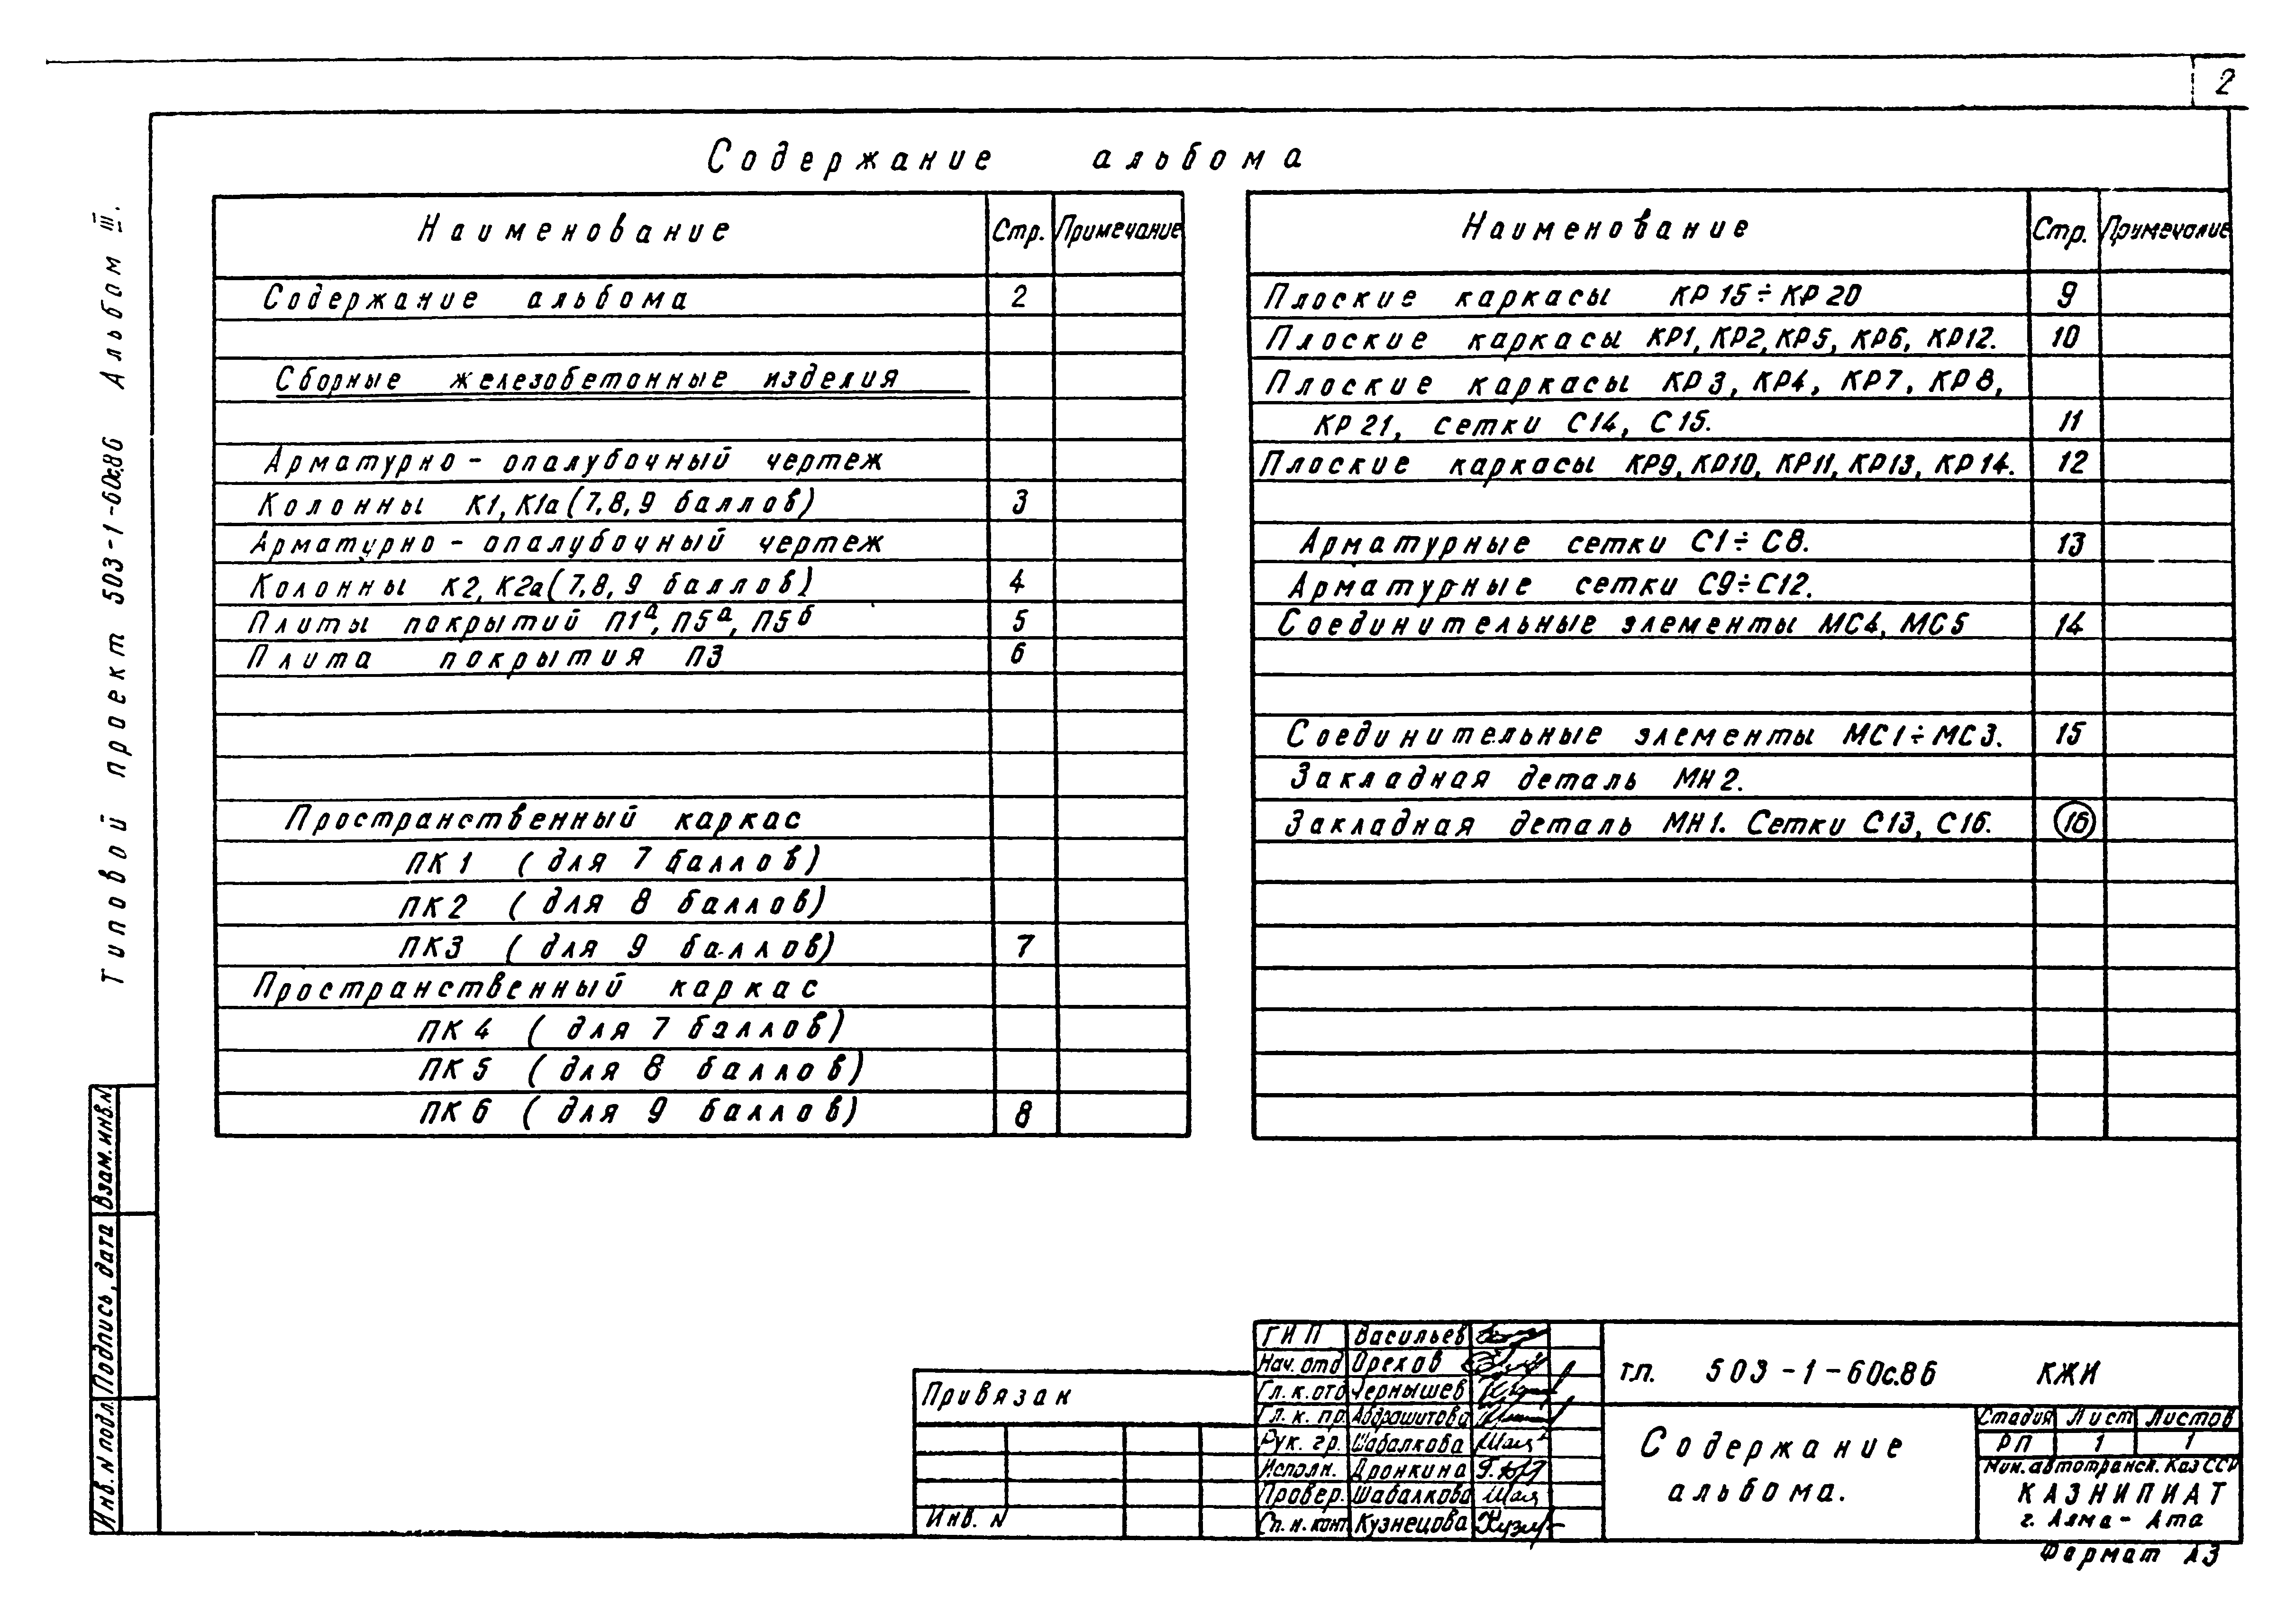 2
Содержание альбома
Наименование Стр. Примечание
Содержание альбома 2
Сборные железобетонные изделия
Арматурно - опалубочный чертеж
Колонны К1, К1а (7,8,9 баллов) 3
Арматурно - опалубочный чертеж
Колонны К2, К2а (7,8,9 баллов) 4
Плиты покрытий П1а, П5а, П5б 5
Плита покрытия П3 6
Пространственный каркас
ПК1 (для 7 баллов)
ПК2 (для 8 баллов)
ПК3 (для 9 баллов) 7
Пространственный каркас
ПК4 (для 7 баллов)
ПК5 (для 8 баллов)
ПК6 (для 9 баллов) 8
Наименование Стр. Примечание
Плоские каркасы КР15÷КР20 9
Плоские каркасы КР1, КР2, КР5, КР6, КР12. 10
Плоские каркасы КР3, КР4, КР7, КР8,
КР21, сетки С14, С15. 11
Плоские каркасы КР9, КР10, КР11, КР13, КР14. 12
Арматурные сетки С1÷С8. 13
Арматурные сетки С9÷С12.
Соединительные элементы МС4, МС5 14
Соединительные элементы МС1÷МС3. 15
Закладная деталь МН2.
Закладная деталь МН1. Сетки С13, С16. 16
Типовой проект 503-1-60с.86 Альбом III.
Инв. N подл. Подпись, дата Взам. инв. N
Привязан
Инв. N
ГИП Васильев
Нач. отд Орехов
Гл. к. отд Чернышев
Гл. к. пр. Абдрашитова
Рук. гр. Шабалкова
Исполн. Дронкина
Провер. Шабалкова
Сп. н. конт. Кузнецова
т.п. 503-1-60с.86 КЖИ
Содержание
альбома.
Стадия Лист Листов
РП 1 1
Мин. автотрансп. Каз ССР
КАЗНИПИАТ
г. Алма-Ата
Формат А3